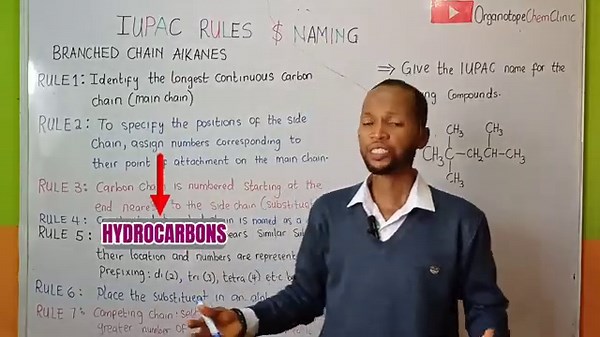 IUPAC RULES $ NAMING
OrganotopeChemClinic
BRANCHED CHAIN AlKANES
RULE 1: Identify the longest continuous carbon
chain (main chain)
RULE 2: To specify the positions of the side
chain, assign numbers corresponding to
their point of attachment on the main chain.
RULE 3: Carbon chain is numbered starting at the
end to the side chain
RULE 4: is named as a
RULE 5: Similar
HYDROCARBONS
their location and numbers are
Prefixing: di(2), tri(3), tetra(4) etc
RULE 6: Place the substituent in an
RULE 7: Competing chain:
greater number of
⇒ Give the IUPAC name for the
compounds.
CH3 CH3
CH3-C-CH2-CH-CH3
CH3